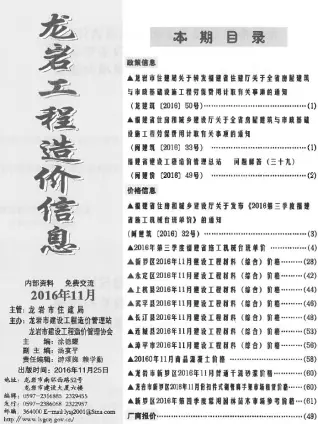 龙岩工程造价信息
内部资料 免费交流
2016年11月
主管：龙岩市住建局
主办：龙岩市建设工程造价管理站
龙岩市建设工程造价管理协会
出版时间：2016年11月25日
本期目录
政策信息
▲龙岩市住建局关于转发福建省住建厅关于全省房屋建筑
与市政基础设施工程劳保费用计取有关事项的通知
（龙建筑〔2016〕50号）(1)
▲福建省住房和城乡建设厅关于全省房屋建筑与市政基础
设施工程劳保费用计取有关事项的通知
（闽建筑〔2016〕33号）(1)
福建省建设工程造价管理总站 问题解答（三十九）
（闽建价〔2016〕49号）(2)
价格信息
▲福建省住房和城乡建设厅关于发布《2016第三季度福建
省施工机械台班单价》的通知
（闽建筑〔2016〕32号）(3)
▲2016年第三季度福建省施工机械台班单价(4)
▲新罗区2016年11月建设工程材料（综合）价格(28)
▲永定区2016年11月建设工程材料（综合）价格(42)
▲上杭县2016年11月建设工程材料（综合）价格(44)
▲武平县2016年11月建设工程材料（综合）价格(46)
▲长汀县2016年11月建设工程材料（综合）价格(48)
▲连城县2016年11月建设工程材料（综合）价格(53)
▲漳平市2016年11月建设工程材料（综合）价格(56)
▲2016年11月商品混凝土价格(58)
▲龙岩市新罗区2016年11月普通干混砂浆价格(60)
厂商报价(49)